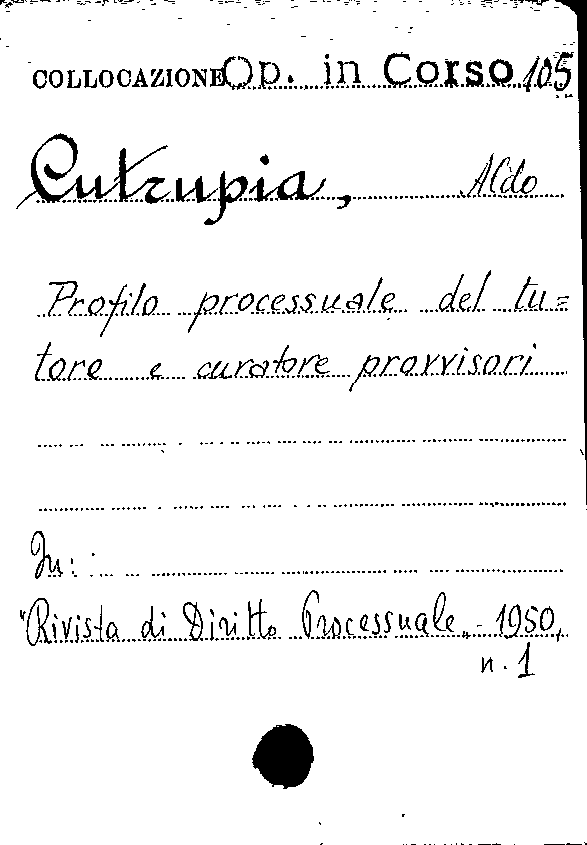 COLLOCAZIONE Op. in Corso 105
Cutrupia, Aldo
Profilo processuale del tu=
tore e curatore provvisori
In:
"Rivista di Diritto Processuale„ - 1950,
n. 1